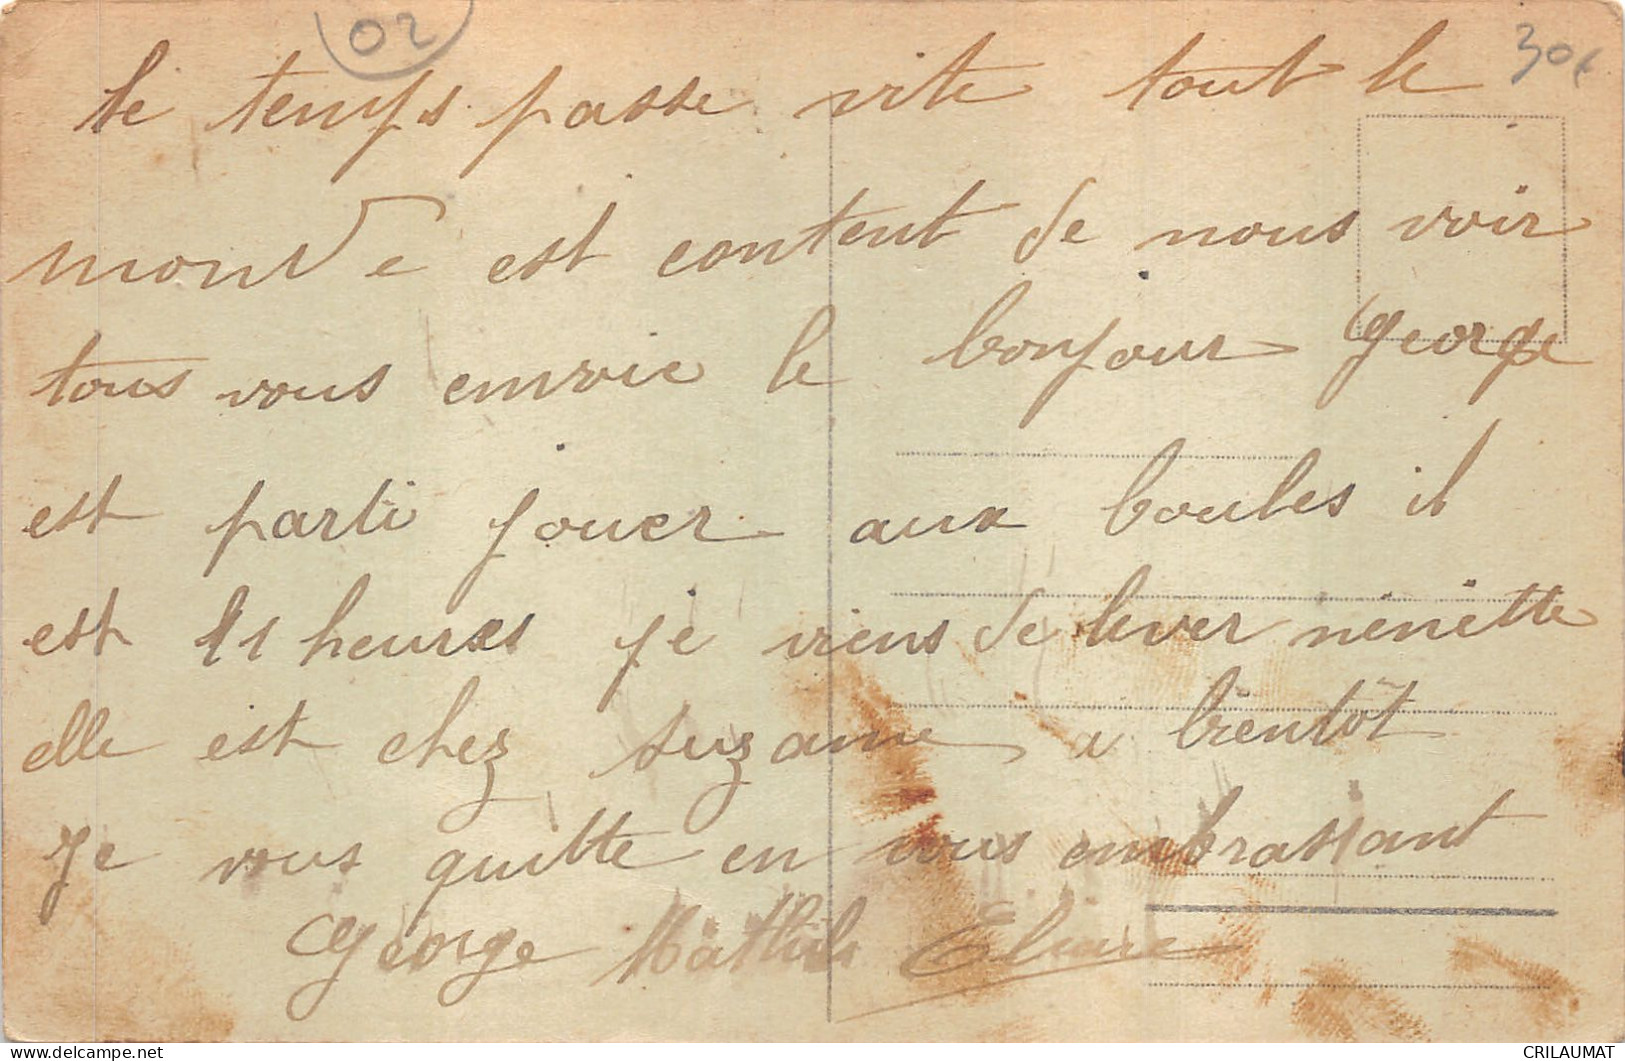 02
30€
le temps passe vite tout le
monde est content de nous voir
tous vous envoie le bonjour George
est parti jouer aux boules il
est 11 heures je viens de lever ninette
elle est chez suzanne a bientôt
Je vous quitte en vous embrassant
George Mathilde
CRILAUMAT